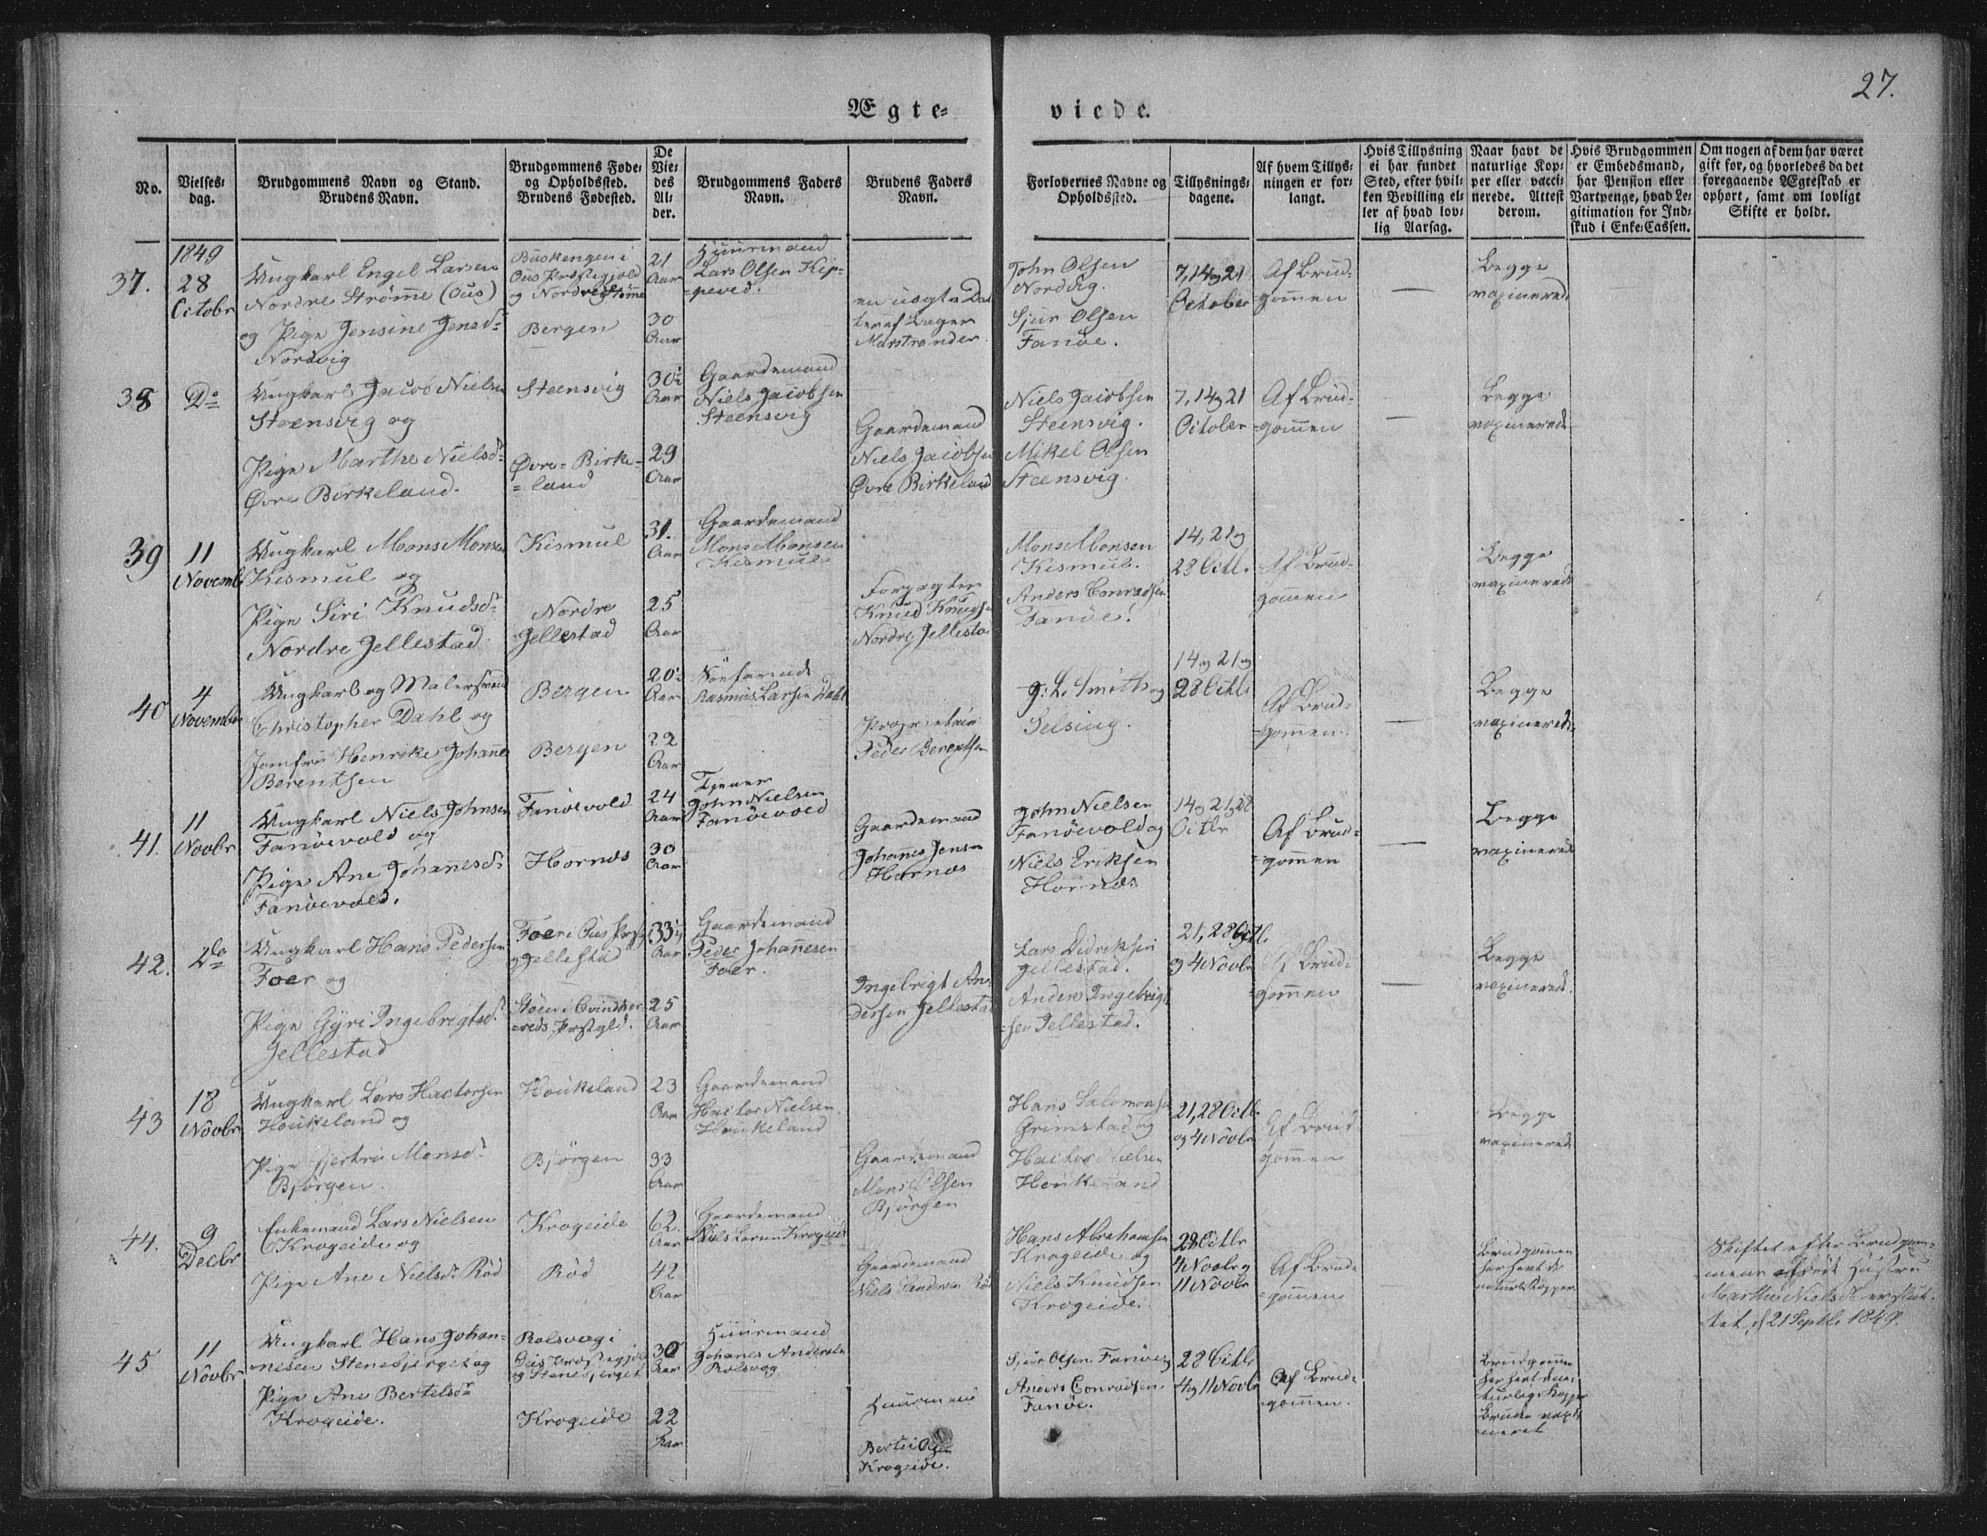 27.
Ægte-
viede.
No.
Vielses-
dag.
Brudgommens Navn og Stand.
Brudens Navn.
Brudgommens Føde-
og Opholdssted.
Brudens Fødested.
De
Vie-
des
Al-
der.
Brudgommens Faders
Navn.
Brudens Faders
Navn.
Forlovernes Navne og
Opholdssted.
Tillysnings-
dagene.
Af hvem Tillys-
ningen er for-
langt.
Hvis Tillysning
ei har fundet
Sted, efter hvil-
ken Bevilling el-
ler af hvad lov-
lig Aarsag.
Naar havt de
naturlige Kop-
per eller vacci-
nerede. Attest
derom.
Hvis Brudgommen
er Embedsmand,
har Pension eller
Vartpenge, hvad Le-
gitimation for Ind-
skud i Enke-Cassen.
Om nogen af dem har været
gift før, og hvorledes da det
foregaaende Ægteskab er
ophørt, samt om lovligt
Skifte er holdt.
37.
1849
28
Octobr
Ungkarl Engel Larsen
Nordre Strømme (Ous)
og Pige Jensine Jensd.
Nordvig
Buskengen i
Ous Præstegjeld
og Nordre Strøme
Bergen
21
Aar
30
Aar
Huusmand
Lars Olsen Kip-
peved.
en uægte Dat
ter af
Marstrander
John Olsen
Nordvig.
Sjur Olsen
Fanøe.
7, 14 og 21
October
Af Brud-
gommen
Begge
vaxinerede
38
Do
Ungkarl Jacob Nielsen
Steensvig og
Pige Marthe Nielsd.
Øvre Birkeland.
Steensvig
Øvre-Birke-
land
30½
Aar
29
Aar
Gaardemand
Niels Jacobsen
Steensvig
Gaardemand
Niels Jacobsen
Øvre Birkeland
Niels Jacobsen
Steensvig.
Mikel Olsen
Steensvig.
7, 14 og 21
October
Af Brud-
gommen
Begge
vaxinerede
39
11
Novemb
Ungkarl Mons Monsen
Kismul og
Pige Siri Knudsd.
Nordre Jellestad
Kismul
Nordre
Jellestad
31.
Aar
25
Aar
Gaardemand
Mons Monsen
Kismul
Forpagter
Knud Knudsen
Nordre Jellestad
Mons Monsen
Kismul.
Anders Conradsen
Fanøe.
14, 21 og
28 Octb.
Af Brud-
gommen
Begge
vaxinerede
40
4
November
Ungkarl og Malersvend
Christopher Dahl og
Jomfrue Henrike Johanne
Berentsen
Bergen
Bergen
20½
Aar
22
Aar
Søefarende
Rasmus Larsen Dahl
Proprietair
Peder Berentsen
J: L. Smith og
Selsing.
14 og 21 og
28 Octb.
Af Brud-
gommen
Begge
vaxinerede
41.
11
Novbr
Ungkarl Niels Johnsen
Fanøevold og
Pige Ane Johanesd.
Fanøevold.
Fanøevold
Hornæs
24
Aar
30
Aar
Tjener
John Nielsen
Fanøevold
Gaardemand
Johannes Jensen
Hornæs
John Nielsen
Fanøevold og
Niels Eriksen
Hornæs
14 og 21 og 28
Octbr
Af Brud-
gommen
Begge
vaxinerede
42.
Do
Ungkarl Hans Pedersen
Foer og
Pige Gyri Ingebrigtsd.
Jellestad
Foer i Ous Præstg
og Jellestad
Støen i Qvindher-
reds Præstgld.
33¼
Aar
25
Aar
Gaardemand
Peder Johannesen
Foer.
Ingebrigt An-
dersen Jellestad
Lars Didriksen
Jellestad.
Anders Ingebrigt
sen Jellestad.
21, 28 Octb.
og 4 Novbr
Af Brud-
gommen
Begge
vaxinerede.
43
18
Novbr
Ungkarl Lars Hactorsen
Houkeland og
Pige Gjertrü Monsd.
Bjørgen.
Houkeland
Bjørgen
23
Aar
33
Aar
Gaardemand
Hactor Nielsen
Houkeland
Gaardemand
Mons Olsen
Bjørgen
Hans Salomonsen
Grimstad og
Hactor Nielsen
Houkeland
21, 28 Octb.
og 4 Novbr
Af Brud-
gommen
Begge
vaxinerede
44.
9
Decbr
Enkemand Lars Nielsen
Krogeide og
Pige Ane Nielsd. Rød
Krogeide
Rød
62.
Aar
42
Aar
Gaardemand
Niels Larsen Krogeide
Gaardemand
Niels Rød
Hans Abrahamsen
Krogeide og
Niels Knudsen
Krogeide.
28 Octbr
4 Novbr og
11 Novbr
Af Brud-
gommen
Brudgomen
har havt de
naturl. Kopper
Skiftet efter Brudgom-
mens afdøde Hustru
Marthe Nielsd. er slut-
tet d. 21 Septb. 1849.
45
11
Novbr
Ungkarl Hans Johan-
nesen Stenebjerget og
Pige Ane Bertelsd.
Krogeide.
Rolsvog i
Ous Præstegjeld
og Stenebjerget
Krogeide
30
Aar
22
Aar
Huusmand
Johanes Andersen
Rolsvog
Huusmand
Bertel Olsen
Krogeide.
Sjur Olsen Fanøe og
Anders Conradsen
Fanøe.
28 Octbr
4 og 11 Novbr
Af Brud-
gommen.
Brudgommen
har havt de na-
turlige Kopper
Bruden vaxi-
neret